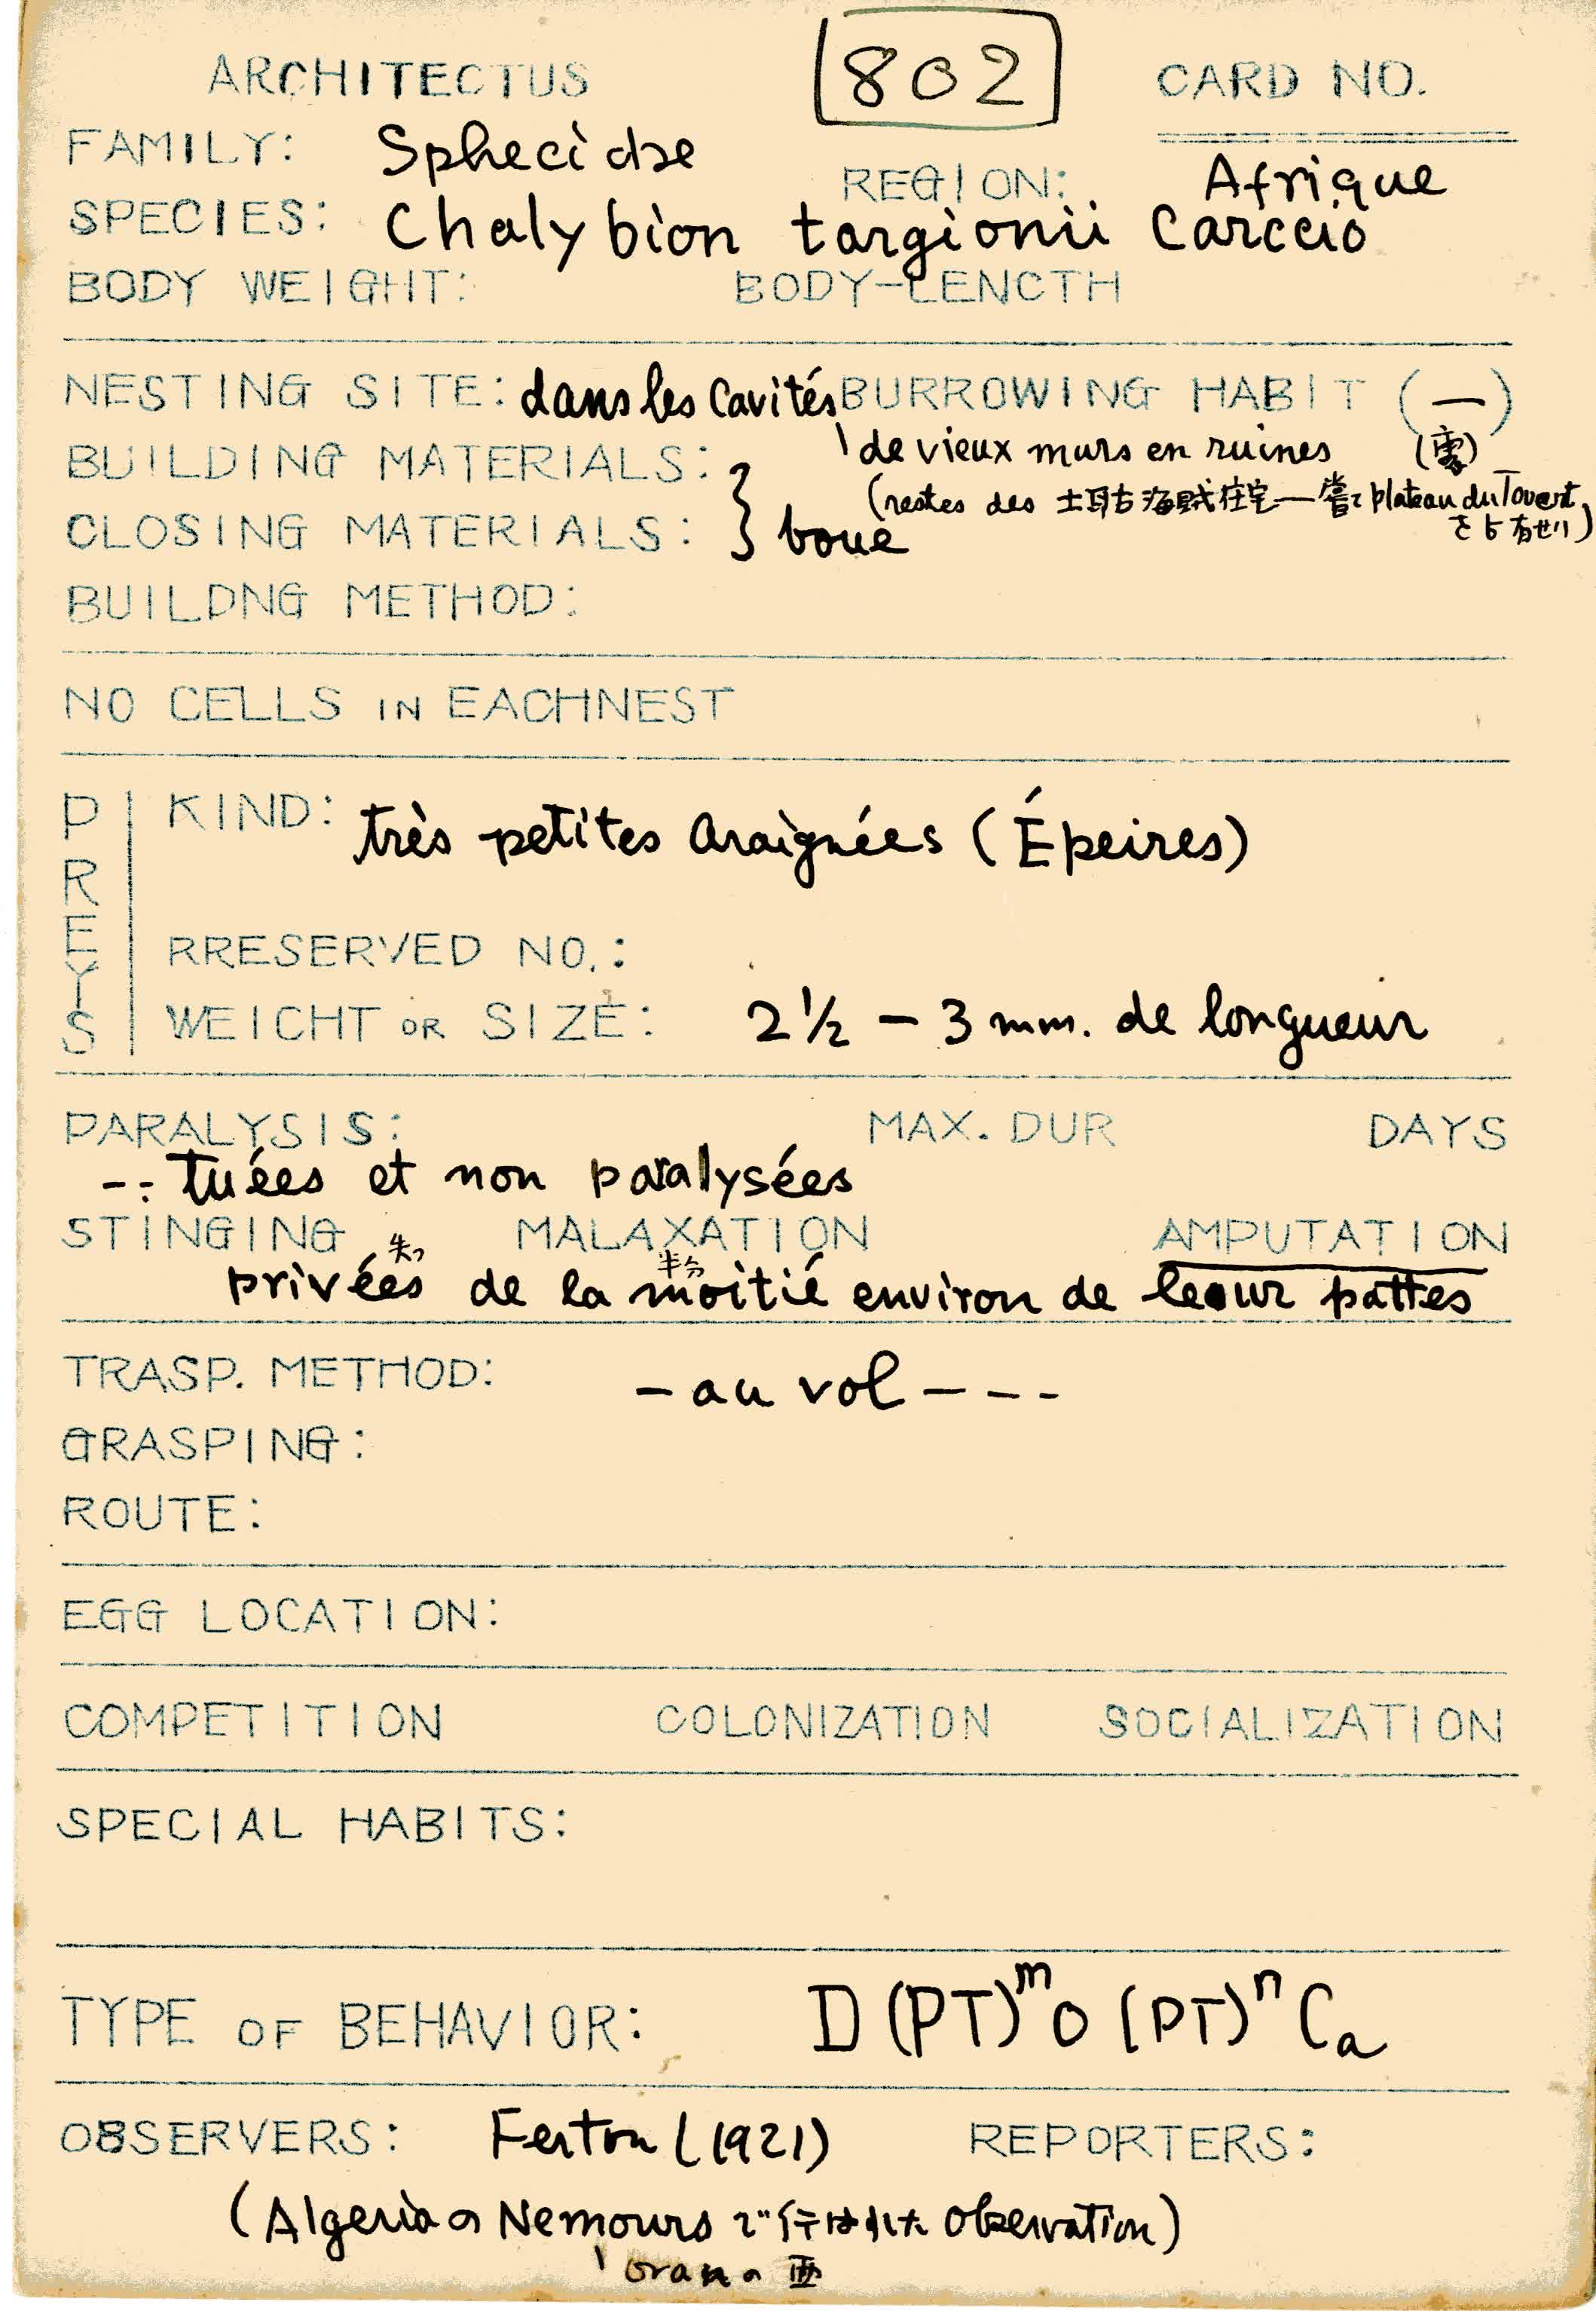 ARCHITECTUS 802 CARD NO.
FAMILY: Sphecidae REGION: Afrique
SPECIES: Chalybion targionii Carccio
BODY WEIGHT: BODY-LENCTH
NESTING SITE: dans les Cavités BURROWING HABIT (—)
de vieux murs en ruines
BUILDING MATERIALS:
(restes des 土耳古海賊住宅—嘗て plateau du Touent
を占有せり)
CLOSING MATERIALS: } boue
BUILDNG METHOD:
NO CELLS IN EACHNEST
PREYS
KIND: très petites araignées (Épeires)
RRESERVED NO.:
WEICHT OR SIZE: 2½ — 3 mm. de longueur
PARALYSIS: MAX. DUR DAYS
--: tuées et non paralysées
STINGING MALAXATION AMPUTATION
失フ 半分
privées de la moitié environ de leur pattes
TRASP. METHOD: — au vol — - - -
GRASPING:
ROUTE:
EGG LOCATION:
COMPETITION COLONIZATION SOCIALIZATION
SPECIAL HABITS:
TYPE OF BEHAVIOR: D (PT)ᵐ O (PT)ⁿ Ca
OBSERVERS: Ferton (1921) REPORTERS:
(Algeria の Nemours で行はれた Observation)
Oran の西